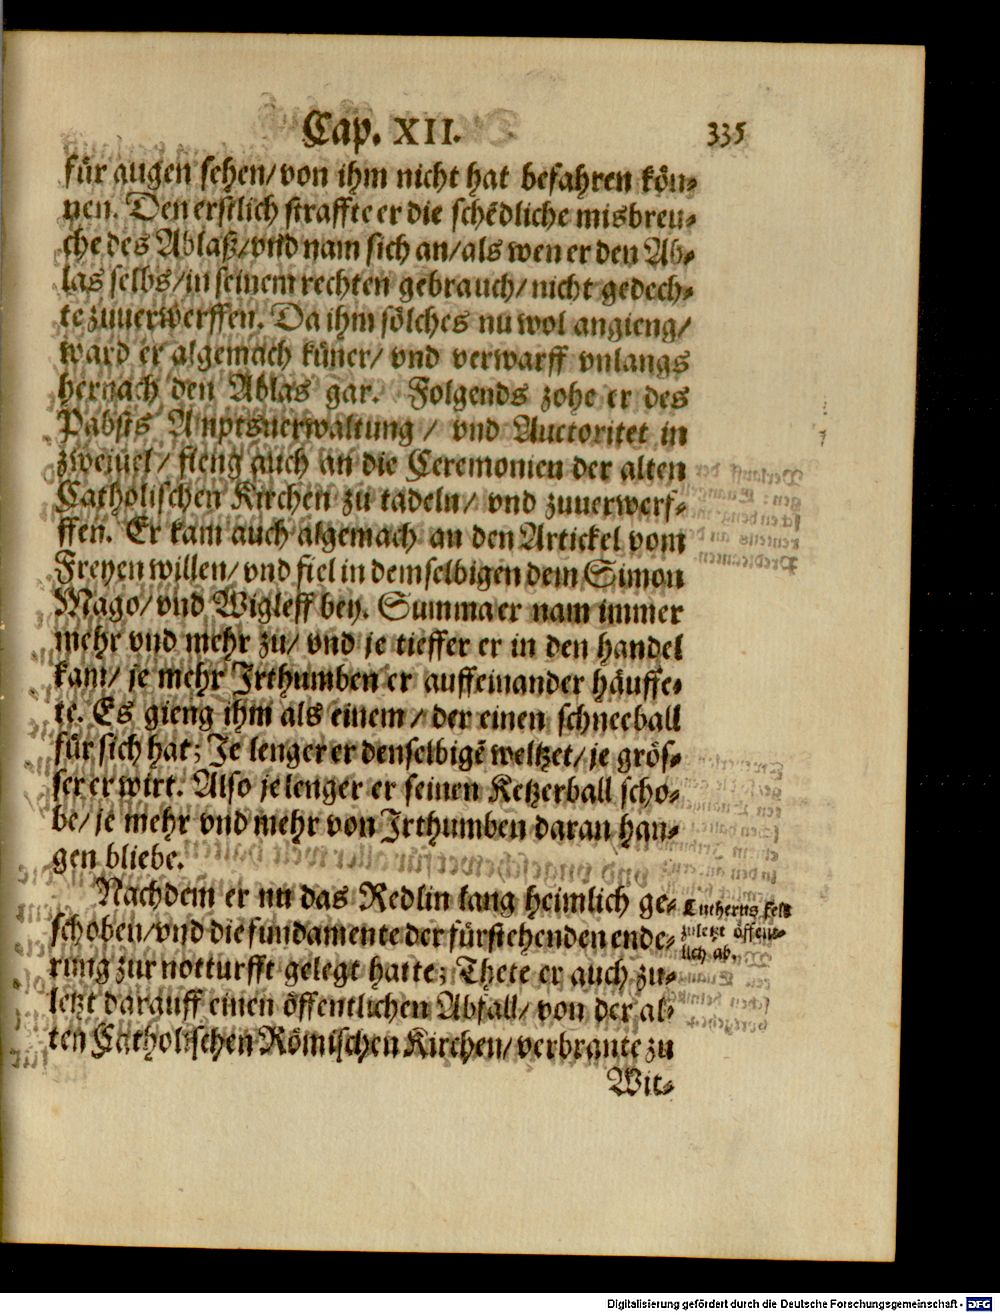 Cap. XII. 335
für augen sehen/ von ihm nicht hat befahren kön⸗
nen. Den erstlich straffte er die schedliche misbreu⸗
che des Ablaß/ vnd nam sich an/ als wen er den Ab⸗
las selbs/ in seinem rechten gebrauch/ nicht gedech⸗
te zuuerwerffen. Da ihm sölches nu wol angieng/
ward er algemach küner/ vnd verwarff vnlangs
hernach den Ablas gar. Folgends zohe er des
Pabsts Amptsuerwaltung / vnd Auctoritet in
zweiuel/ fieng auch an die Ceremonien der alten
Catholischen Kirchen zu tadeln/ vnd zuuerwerf⸗
ffen. Er kam auch algemach an den Artickel vom
Freyen willen/ vnd fiel in demselbigen dem Simon
Mago/ vnd Wigleff bey. Summa er nam immer
mehr vnd mehr zu/ vnd je tieffer er in den handel
kam/ je mehr Irthumben er auffeinander häuffe⸗
te. Es gieng ihm als einem / der einen schneeball
für sich hat; Je lenger er denselbigē weltzet/ je grös⸗
ser er wirt. Also je lenger er seinen Ketzerball scho⸗
be/ je mehr vnd mehr von Irthumben daran han⸗
gen bliebe.
Nachdem er nu das Redlin lang heimlich ge⸗
schoben/ vnd die fundamente der fürstehenden ende⸗
rung zur notturfft gelegt hatte; Thete er auch zu⸗
letzt darauff einen öffentlichen Abfall/ von der al⸗
ten Catholischen Römischen Kirchen/ verbrante zu
Wit⸗
Lutherus felt
zuletzt öffent⸗
lich ab.
Digitalisierung gefördert durch die Deutsche Forschungsgemeinschaft - DFG